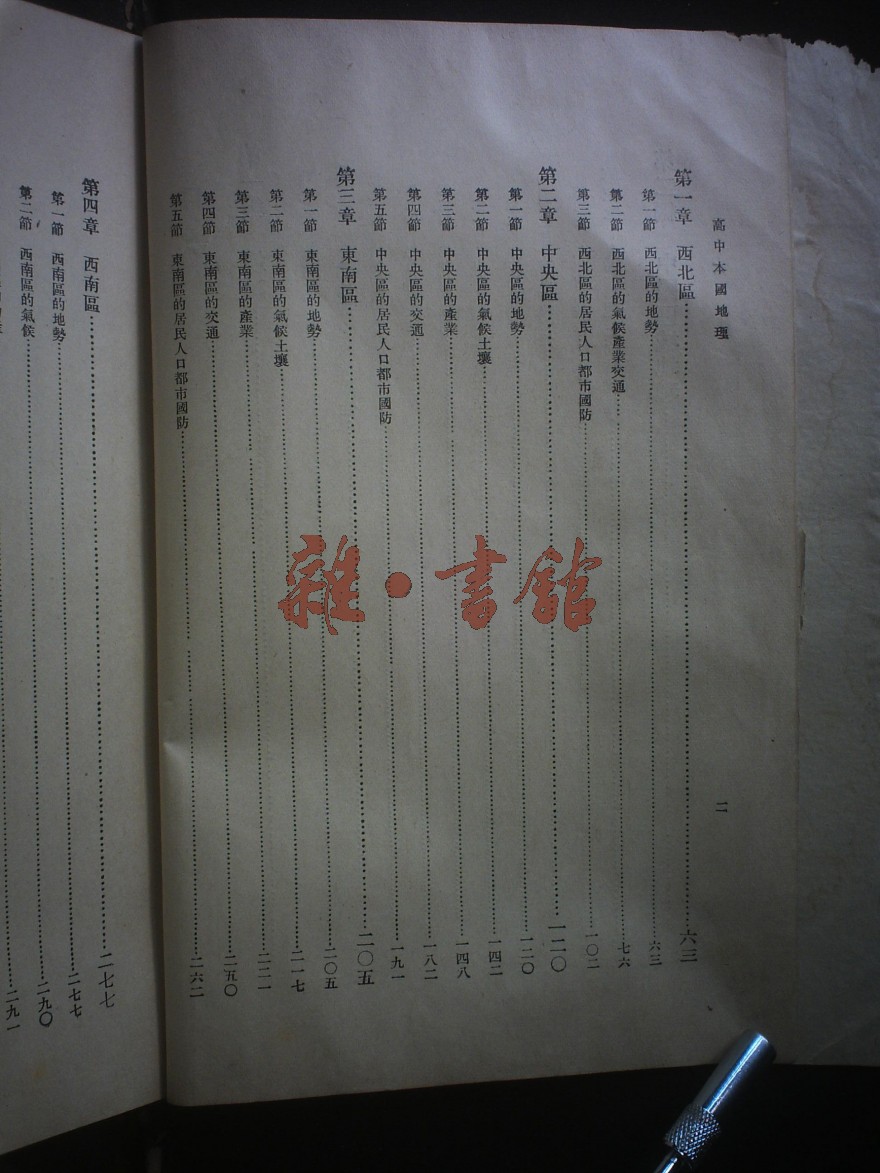 高中本國地理
二
第一章 西北區 六三
第一節 西北區的地勢 六三
第二節 西北區的氣候產業交通 七六
第三節 西北區的居民人口都市國防 一〇二
第二章 中央區 一二〇
第一節 中央區的地勢 一二〇
第二節 中央區的氣候土壤 一四二
第三節 中央區的產業 一四八
第四節 中央區的交通 一八二
第五節 中央區的居民人口都市國防 一九一
第三章 東南區 二〇五
第一節 東南區的地勢 二〇五
第二節 東南區的氣候土壤 二一七
第三節 東南區的產業
第四節 東南區的交通 二五〇
第五節 東南區的居民人口都市國防 二六二
第四章 西南區 二七七
第一節 西南區的地勢 二七七
第二節 西南區的氣候 二九〇
二九一
雜·書館